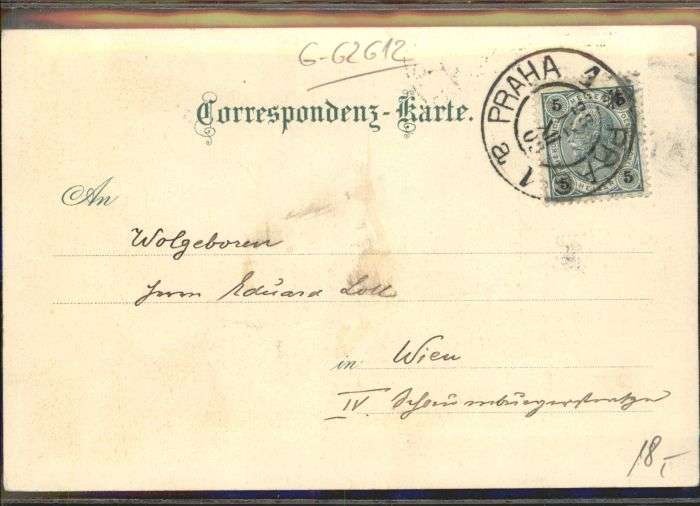 G-62612
Correspondenz-Karte.
PRAHA 1
5 5
5 5
An
Wolgeboren
Herrn Eduard Loll
in Wien
IV. Schaumburgerstrasse
18,-